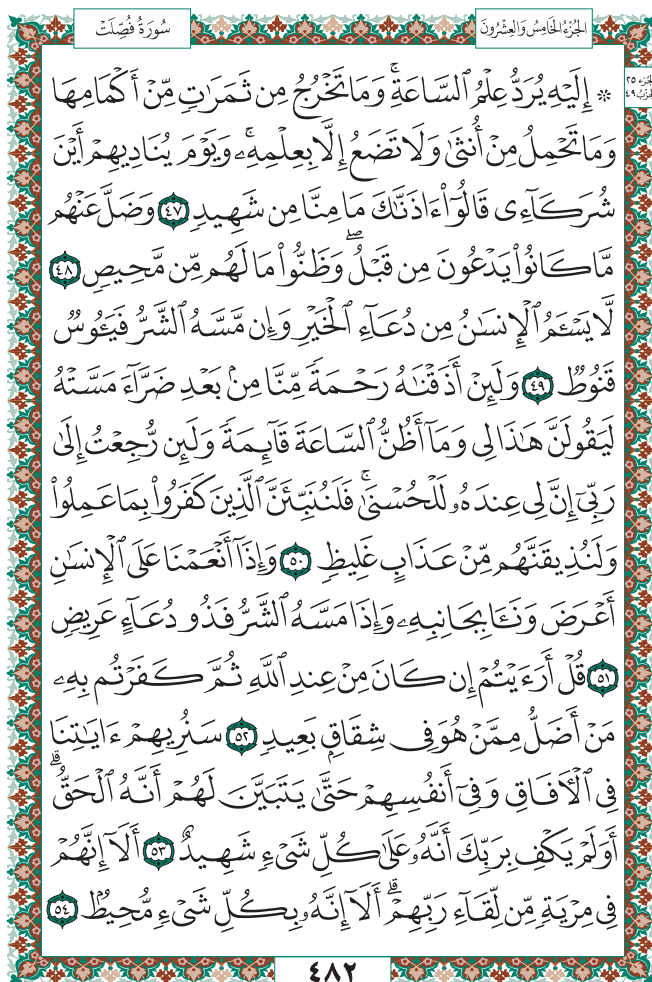 سُورَةُ فُصِّلَتْ
الجُزْءُ الخَامِسُ وَالعِشْرُونَ
الجزء ٢٥
الحزب ٤٩
۞ إِلَيْهِ يُرَدُّ عِلْمُ ٱلسَّاعَةِۚ وَمَا تَخْرُجُ مِن ثَمَرَٰتٍ مِّنْ أَكْمَامِهَا
وَمَا تَحْمِلُ مِنْ أُنثَىٰ وَلَا تَضَعُ إِلَّا بِعِلْمِهِۦۚ وَيَوْمَ يُنَادِيهِمْ أَيْنَ
شُرَكَآءِى قَالُوٓاْ ءَاذَنَّٰكَ مَا مِنَّا مِن شَهِيدٍ ٤٧ وَضَلَّ عَنْهُم
مَّا كَانُواْ يَدْعُونَ مِن قَبْلُۖ وَظَنُّواْ مَا لَهُم مِّن مَّحِيصٍ ٤٨
لَّا يَسْـَٔمُ ٱلْإِنسَٰنُ مِن دُعَآءِ ٱلْخَيْرِ وَإِن مَّسَّهُ ٱلشَّرُّ فَيَـُٔوسٌ
قَنُوطٌ ٤٩ وَلَئِنْ أَذَقْنَٰهُ رَحْمَةً مِّنَّا مِنۢ بَعْدِ ضَرَّآءَ مَسَّتْهُ
لَيَقُولَنَّ هَٰذَا لِى وَمَآ أَظُنُّ ٱلسَّاعَةَ قَآئِمَةً وَلَئِن رُّجِعْتُ إِلَىٰ
رَبِّىٓ إِنَّ لِى عِندَهُۥ لَلْحُسْنَىٰۚ فَلَنُنَبِّئَنَّ ٱلَّذِينَ كَفَرُواْ بِمَا عَمِلُواْ
وَلَنُذِيقَنَّهُم مِّنْ عَذَابٍ غَلِيظٍ ٥٠ وَإِذَآ أَنْعَمْنَا عَلَى ٱلْإِنسَٰنِ
أَعْرَضَ وَنَـَٔا بِجَانِبِهِۦ وَإِذَا مَسَّهُ ٱلشَّرُّ فَذُو دُعَآءٍ عَرِيضٍ
٥١ قُلْ أَرَءَيْتُمْ إِن كَانَ مِنْ عِندِ ٱللَّهِ ثُمَّ كَفَرْتُم بِهِۦ
مَنْ أَضَلُّ مِمَّنْ هُوَ فِى شِقَاقٍۭ بَعِيدٍ ٥٢ سَنُرِيهِمْ ءَايَٰتِنَا
فِى ٱلْـَٔافَاقِ وَفِىٓ أَنفُسِهِمْ حَتَّىٰ يَتَبَيَّنَ لَهُمْ أَنَّهُ ٱلْحَقُّۗ
أَوَلَمْ يَكْفِ بِرَبِّكَ أَنَّهُۥ عَلَىٰ كُلِّ شَىْءٍ شَهِيدٌ ٥٣ أَلَآ إِنَّهُمْ
فِى مِرْيَةٍ مِّن لِّقَآءِ رَبِّهِمْۗ أَلَآ إِنَّهُۥ بِكُلِّ شَىْءٍ مُّحِيطٌۢ ٥٤
٤٨٢